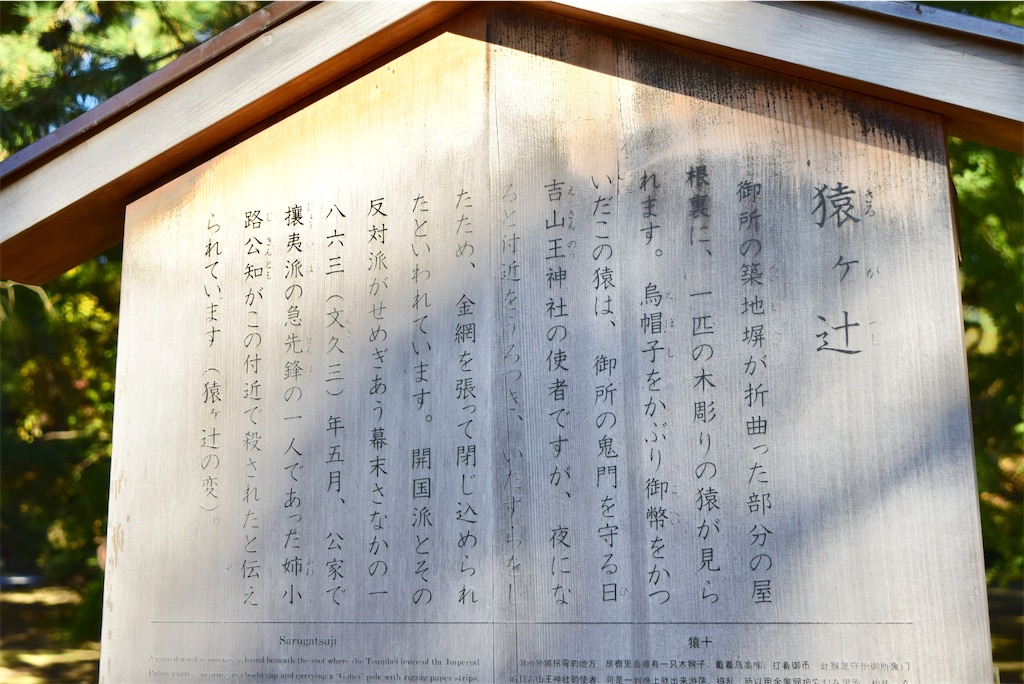 猿ヶ辻
御所の築地塀が折曲った部分の屋
根裏に、一匹の木彫りの猿が見ら
れます。烏帽子をかぶり御幣をかつ
いだこの猿は、御所の鬼門を守る日
吉山王神社の使者ですが、夜にな
ると付近をうろつき、いたずらをし
たため、金網を張って閉じ込められ
たといわれています。開国派とその
反対派がせめぎあう幕末さなかの一
八六三（文久三）年五月、公家で
攘夷派の急先鋒の一人であった姉小
路公知がこの付近で殺されたと伝え
られています（猿ヶ辻の変）。
Sarugatsuji
A carved wooden monkey is found beneath the roof where the Tsuijibei fence of the Imperial
and carrying a "Gohei" pole with zigzag paper strips,
猿十
外墙拐弯的地方，房檐里面藏有一只木猴子，戴着乌高帽，扛着御币